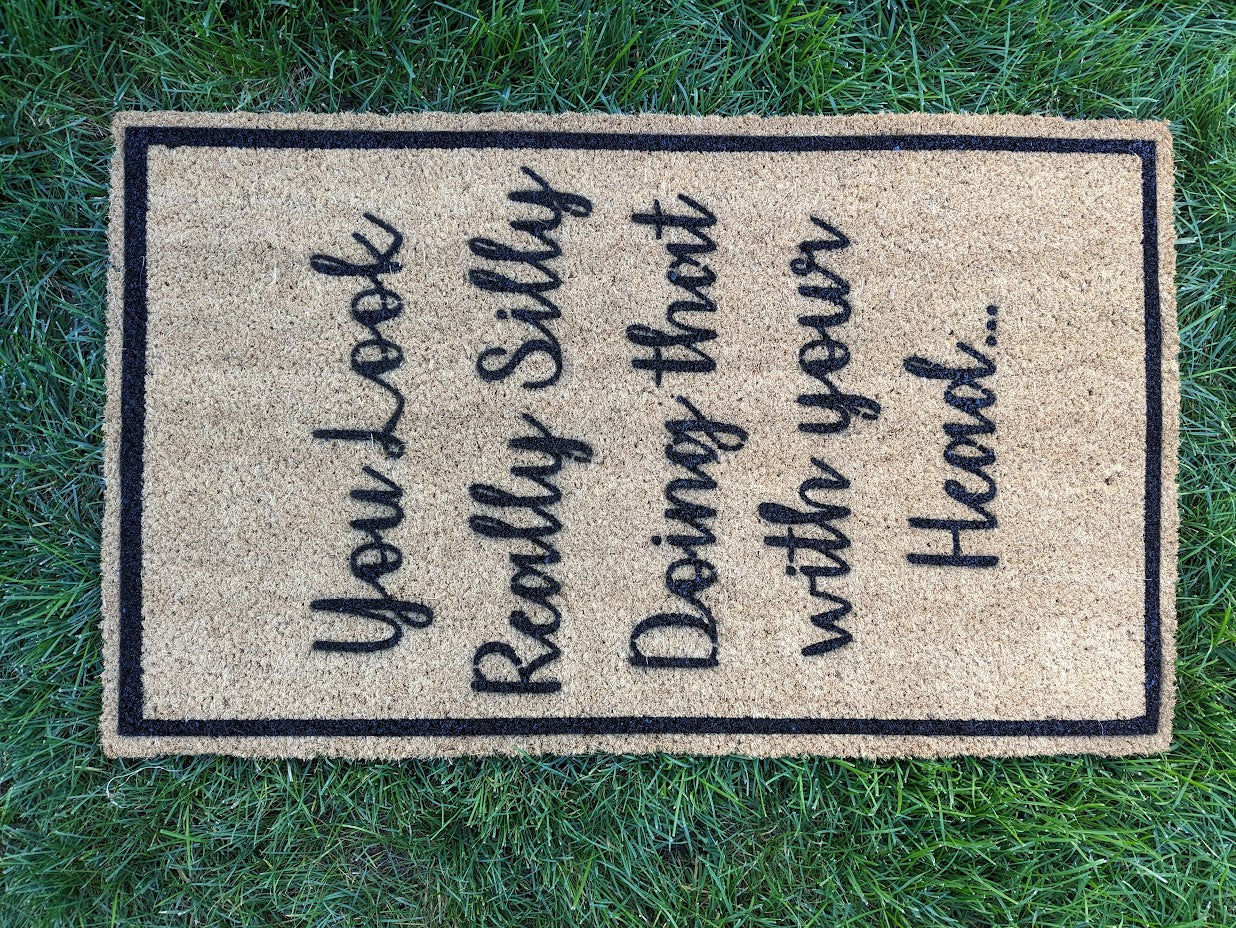 You Look
Really Silly
Doing that
with your
Head...